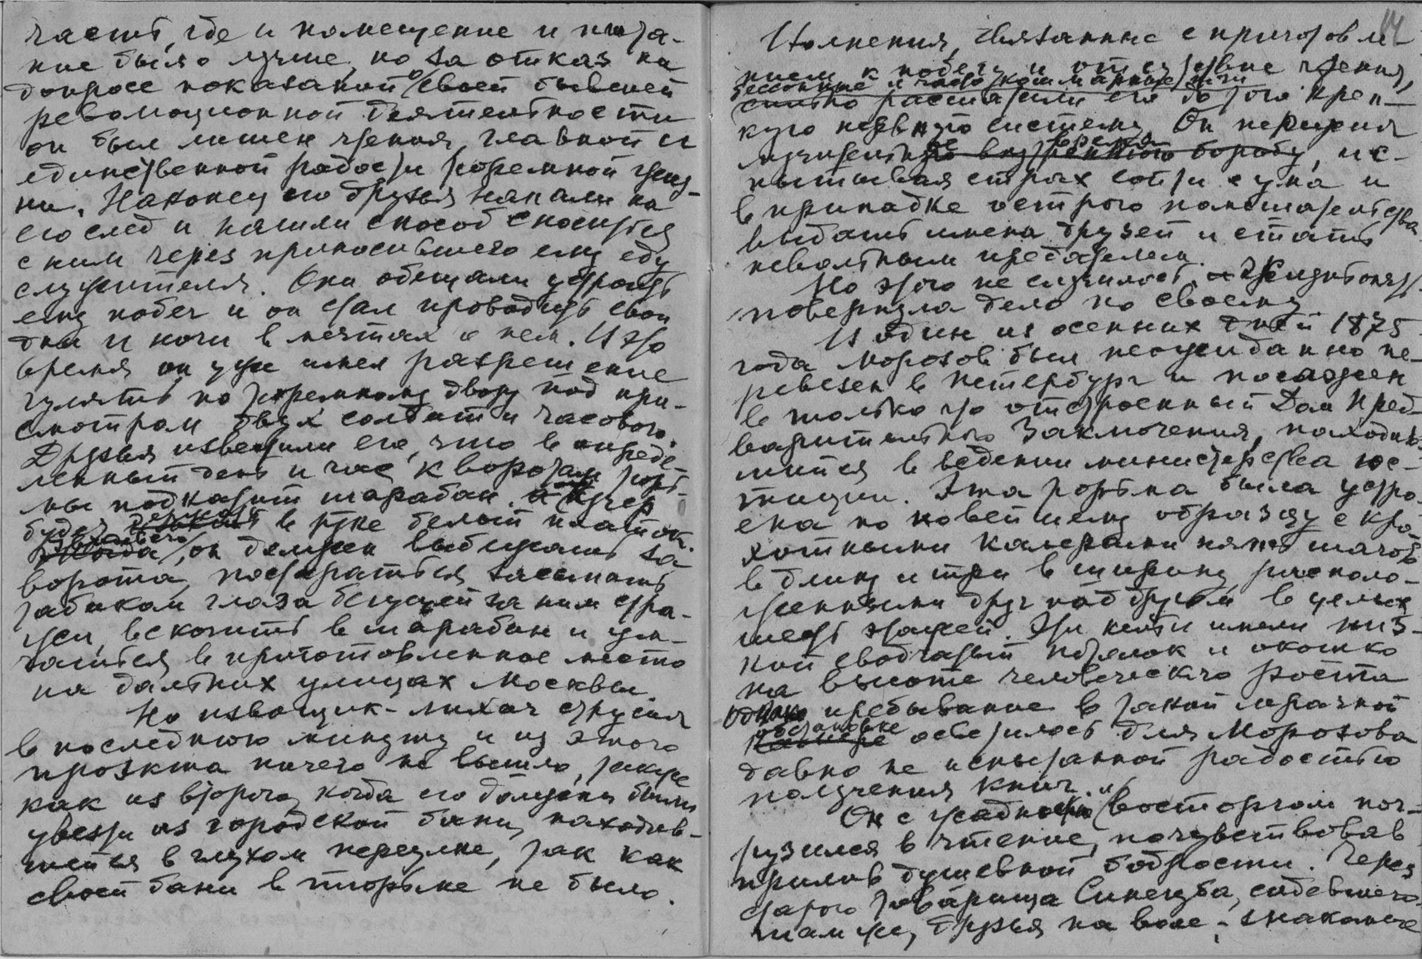 часть, где и помещение и пита-
ние было лучше, но за отказ на
допросе показаний о своей бывшей
революционной деятельности
он был лишен чтения, главной и
единственной радости тюремной жиз-
ни. Наконец его друзья напали на
его след и нашли способ сноситься
с ним через приносившего ему еду
служителя. Они обещали устроить
ему побег и он стал проводить свои
дни и ночи в мечтах о нем. В это
время он уже имел разрешение
гулять по тюремному двору под при-
смотром двух солдат и часового.
Друзья известили его, что в опреде-
ленный день и час к воротам тюрь-
мы подкатит шарабан. и кучер
будет держать в руке белый платок.
он должен выбежать за
ворота, постараться засыпать
табаком глаза бегущей за ним стра-
жи, вскочить в шарабан и ум-
чаться в приготовленное место
на дальних улицах Москвы.
Но извозщик-лихач струсил
в последнюю минуту и из этого
проэкта ничего не вышло, также
как из второго, когда его должны были
увезти из городской бани, находив-
шейся в глухом переулке, так как
своей бани в тюрьме не было.
14
Волнения, связанные с приготовле-
нием к побегу и отсутствие чтения,
бессонные и кошмарные ночи
сильно расшатали его до того креп-
кую нервную систему. Он пережил
мучительную борьбу, ис-
пытывая страх сойти с ума и
в припадке острого помешательства
выдать имена друзей и стать
невольным предателем.
Но этого не случилось.
повернула дело по своему
В один из осенних дней 1875
года Морозов был неожиданно пе-
ревезен в Петербург и посажен
в только что отстроенный Дом Пред-
варительного Заключения, находив-
шийся в ведении министерства юс-
тиции. Эта тюрьма была устро-
ена по новейшему образцу с кро-
хотными камерами пять шагов
в длину и три в ширину, располо-
женными друг над другом в целых
шесть этажей. Эти клетки имели низ-
кий сводчатый потолок и окошко
на высоте человеческого роста
Однако пребывание в такой мрачной
обстановке
камере осветилось для Морозова
давно не испытанной радостью
получения книг.
Он с жадностью и восторгом пог-
рузился в чтение, почувствовав
прилив душевной бодрости. Через
старого товарища Синегуба, сидевшего
там же, друзья на воле,